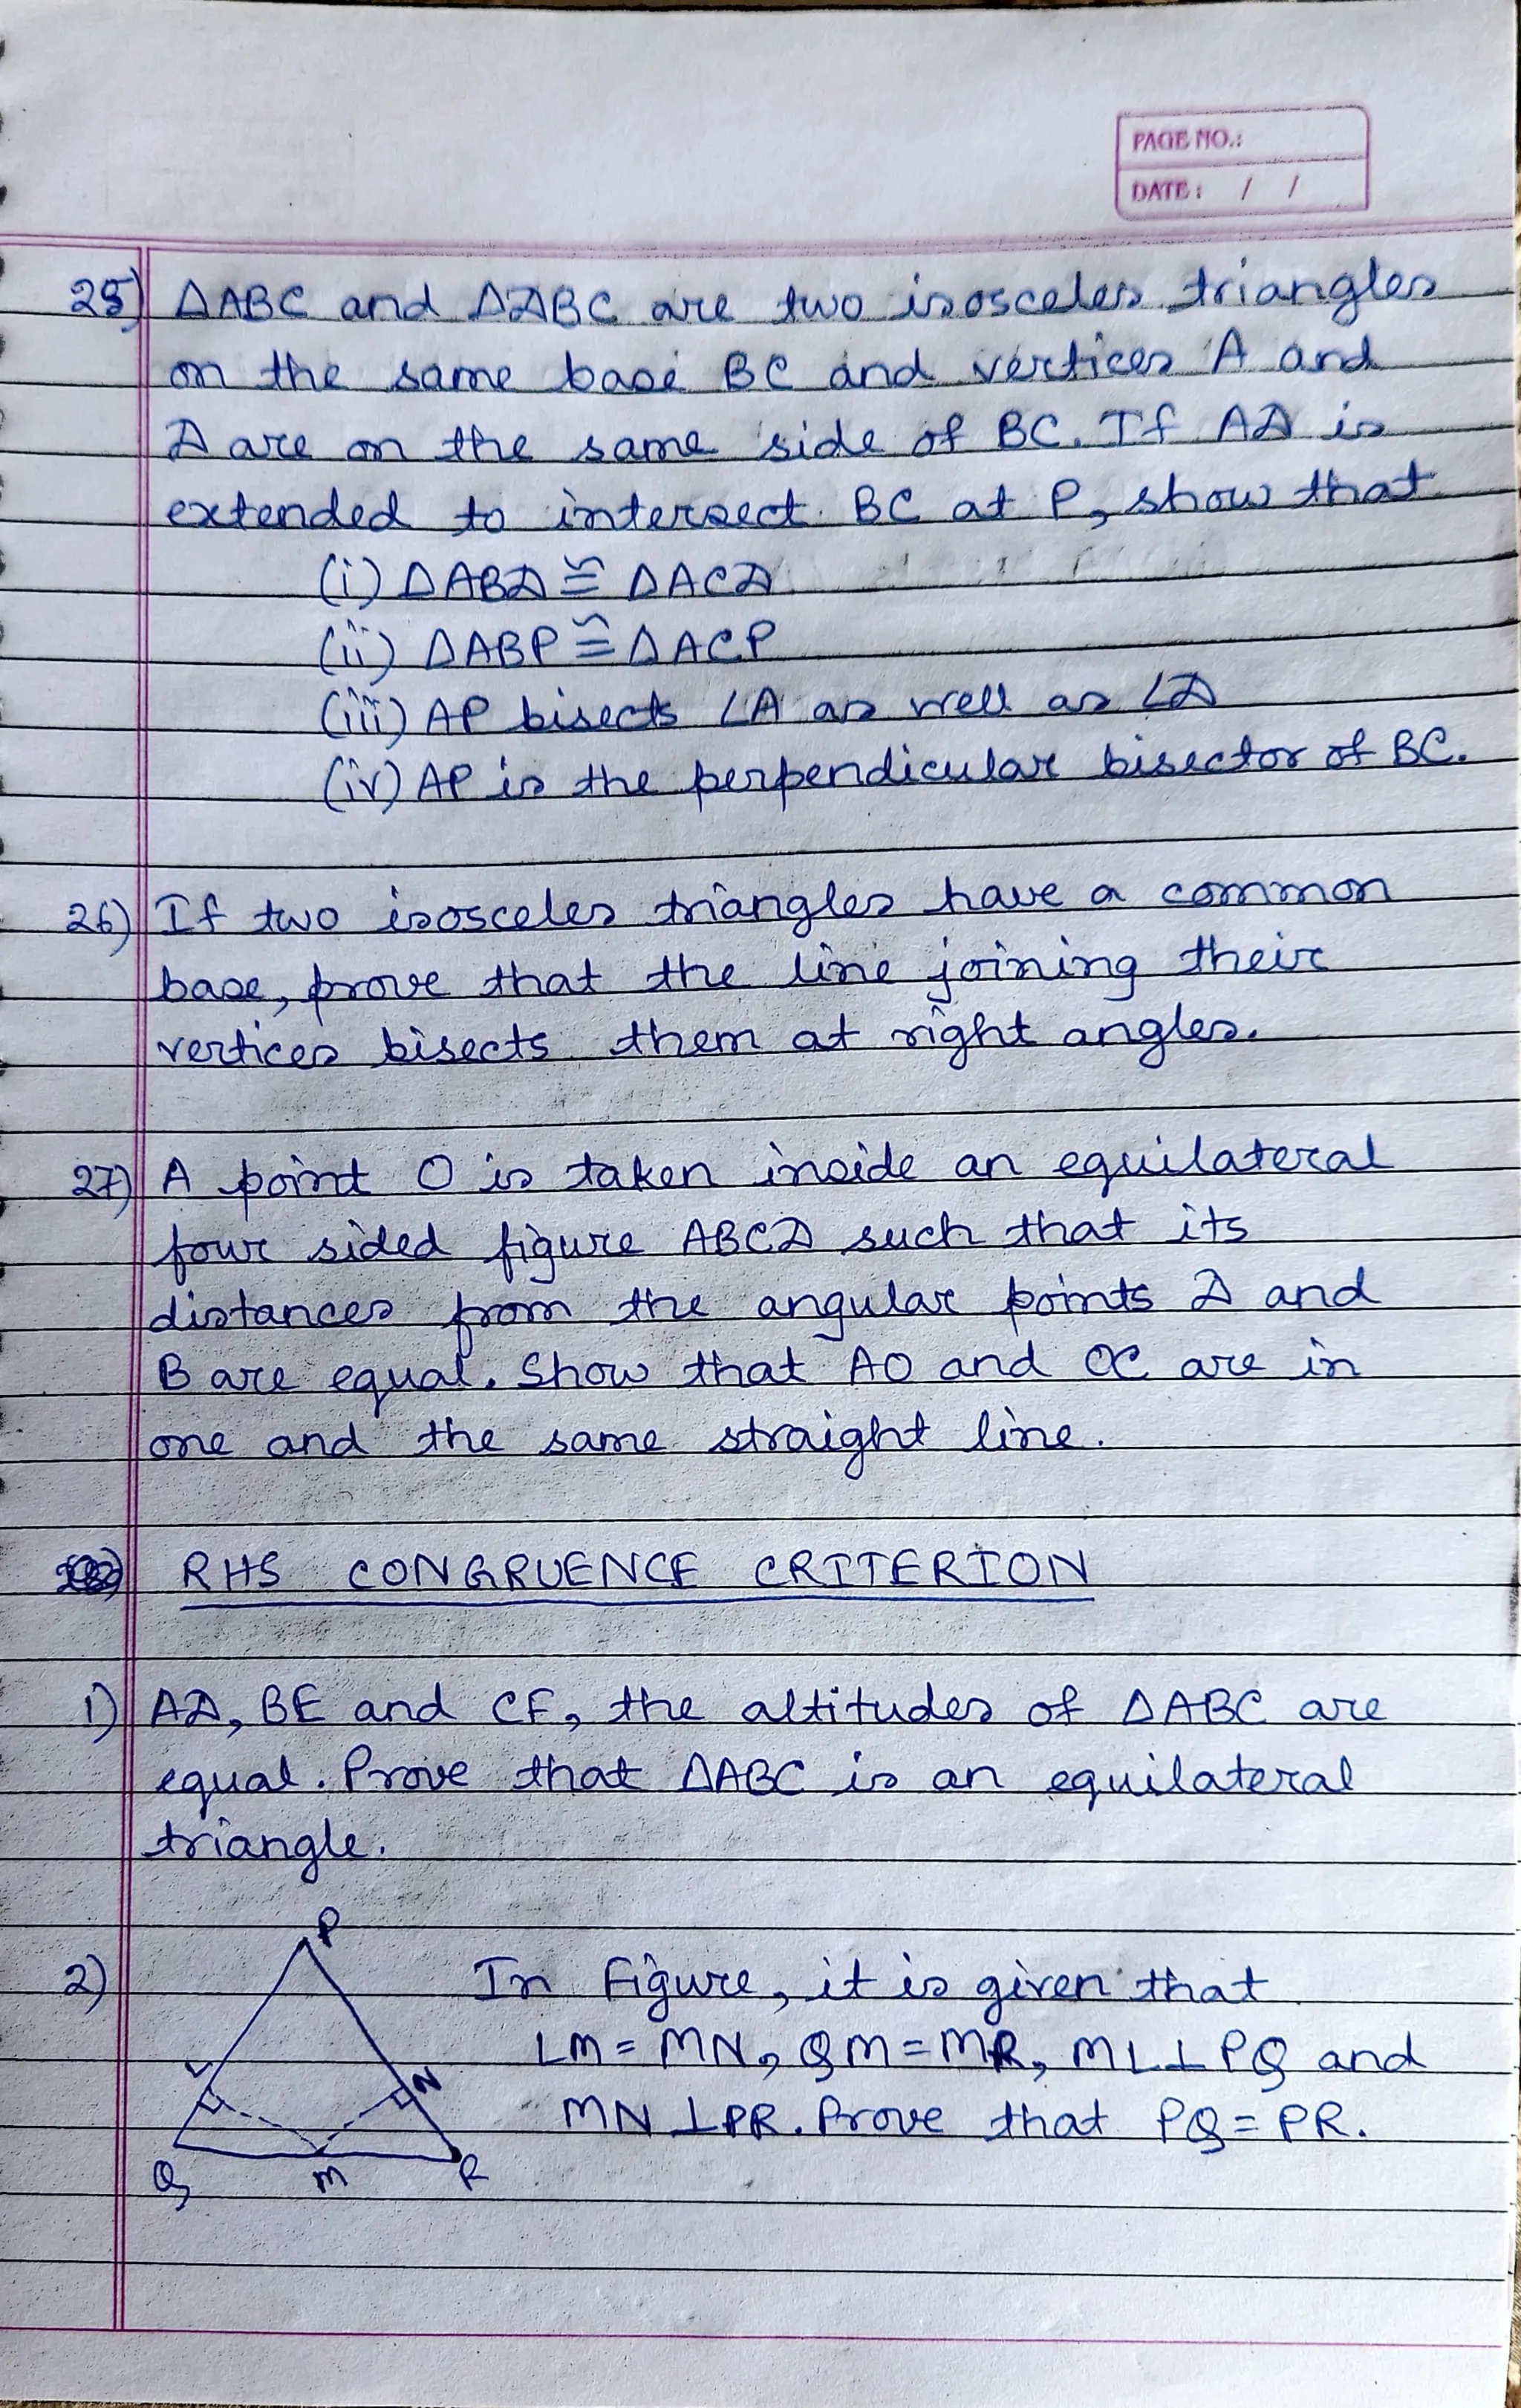 PAGE NO.:
DATE: / /
25) ΔABC and ΔDBC are two isosceles triangles
on the same base BC and vertices A and
D are on the same side of BC. If AD is
extended to intersect BC at P, show that
(i) ΔABD ≅ ΔACD
(ii) ΔABP ≅ ΔACP
(iii) AP bisects ∠A as well as ∠D
(iv) AP is the perpendicular bisector of BC.
26) If two isosceles triangles have a common
base, prove that the line joining their
vertices bisects them at right angles.
27) A point O is taken inside an equilateral
four sided figure ABCD such that its
distances from the angular points D and
B are equal. Show that AO and OC are in
one and the same straight line.
RHS CONGRUENCE CRITERION
1) AD, BE and CF, the altitudes of ΔABC are
equal. Prove that ΔABC is an equilateral
triangle.
P
2) In Figure, it is given that
LM = MN, QM = MR, ML ⊥ PQ and
L N
MN ⊥ PR. Prove that PQ = PR.
Q M R